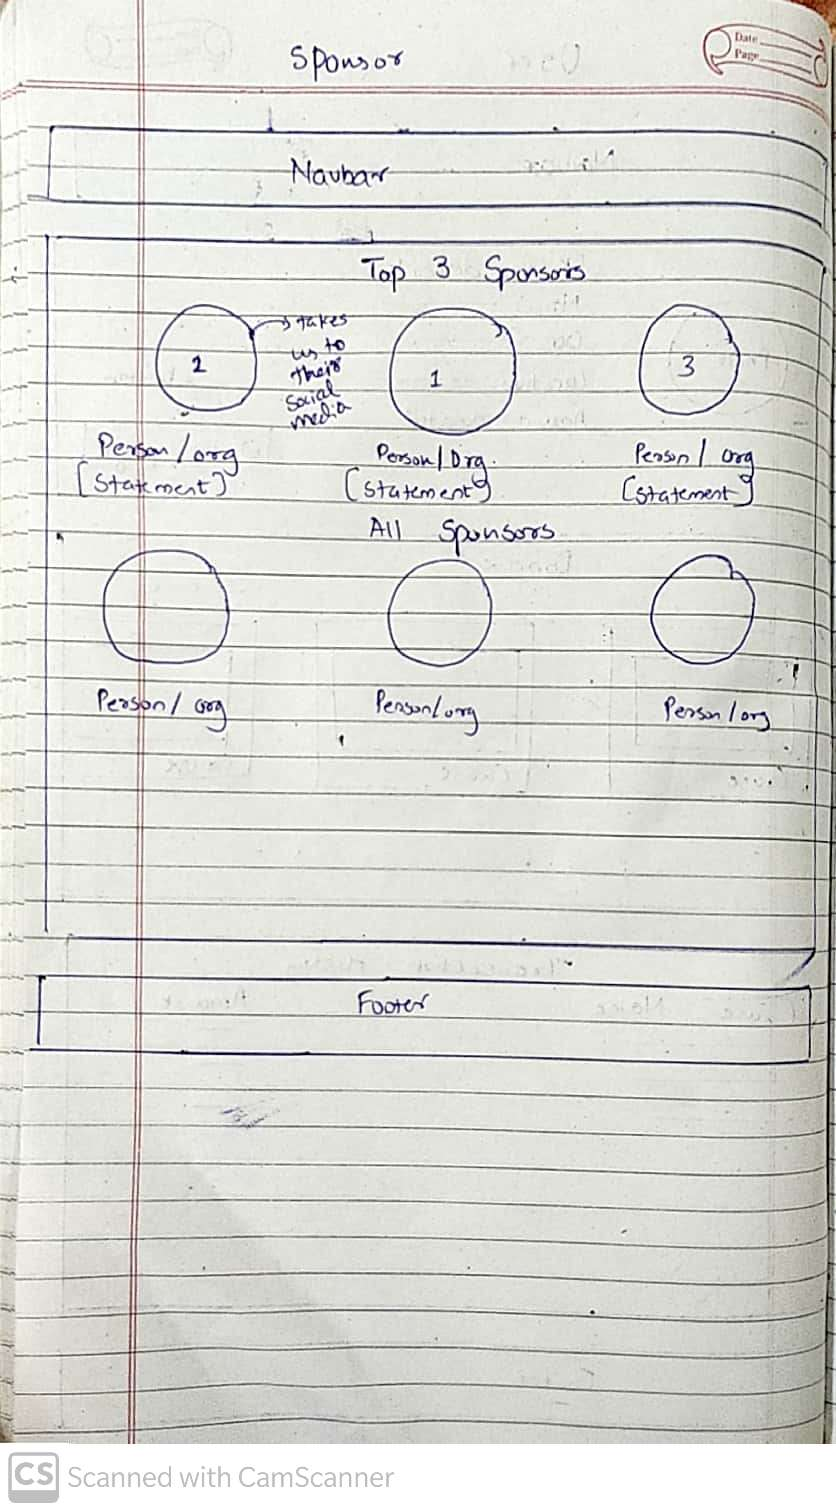 Sponsor
Date
Page
Navbar
Top 3 Sponsors
2
→ takes
us to
their
social
media
1
3
Person / org
[Statement]
Person / Org.
[Statement]
Person / org
[Statement]
All Sponsors
Person / org
Person / org
Person / org
Footer
CS Scanned with CamScanner